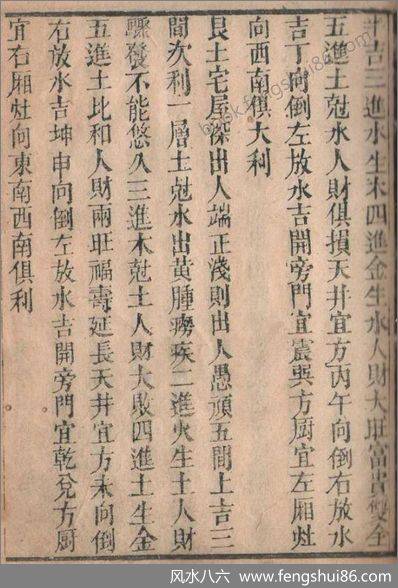 吉三進水生木四進金生水人財大旺富貴雙全
五進土尅水人財俱損天井宜方丙午向倒右放水
吉丁向倒左放水吉開旁門宜震巽方厨宜左廂灶
向西南俱大利
艮土宅屋深出人端正淺則出人愚頑五間上吉三
間次利一層土尅水出黃腫癆疾二進火生土人財
驟發不能悠久三進木尅土人財大敗四進土生金
五進土比和人財兩旺福壽延長天井宜方未向倒
右放水吉坤申向倒左放水吉開旁門宜乾兌方厨
宜右廂灶向東南西南俱利
book.fengshui86.com
风水八六 - www.fengshui86.com